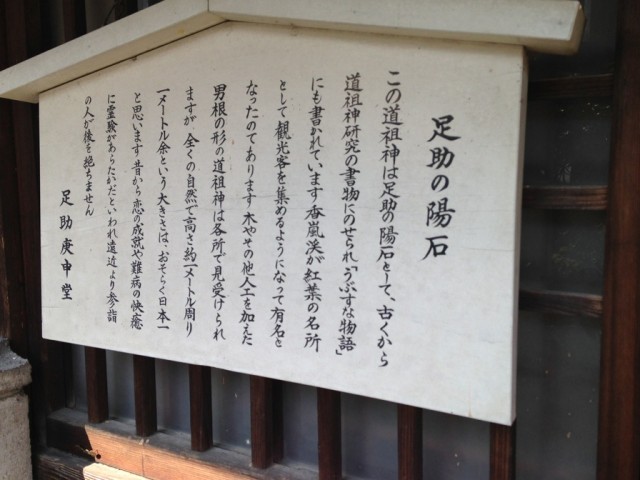 足助の陽石
この道祖神は足助の陽石として、古くから
道祖神研究の書物にのせられ「うぶすな物語」
にも書かれています 香嵐渓が紅葉の名所
として観光客を集めるようになって有名と
なったのであります 木やその他人工を加えた
男根の形の道祖神は各所で見受けられ
ますが 全くの自然で高さ約一メートル周り
一メートル余という大きさは、おそらく日本一
と思います 昔から恋の成就や難病の快癒
に霊験があらたかだといわれ遠近より参詣
の人が後を絶ちません
足助庚申堂